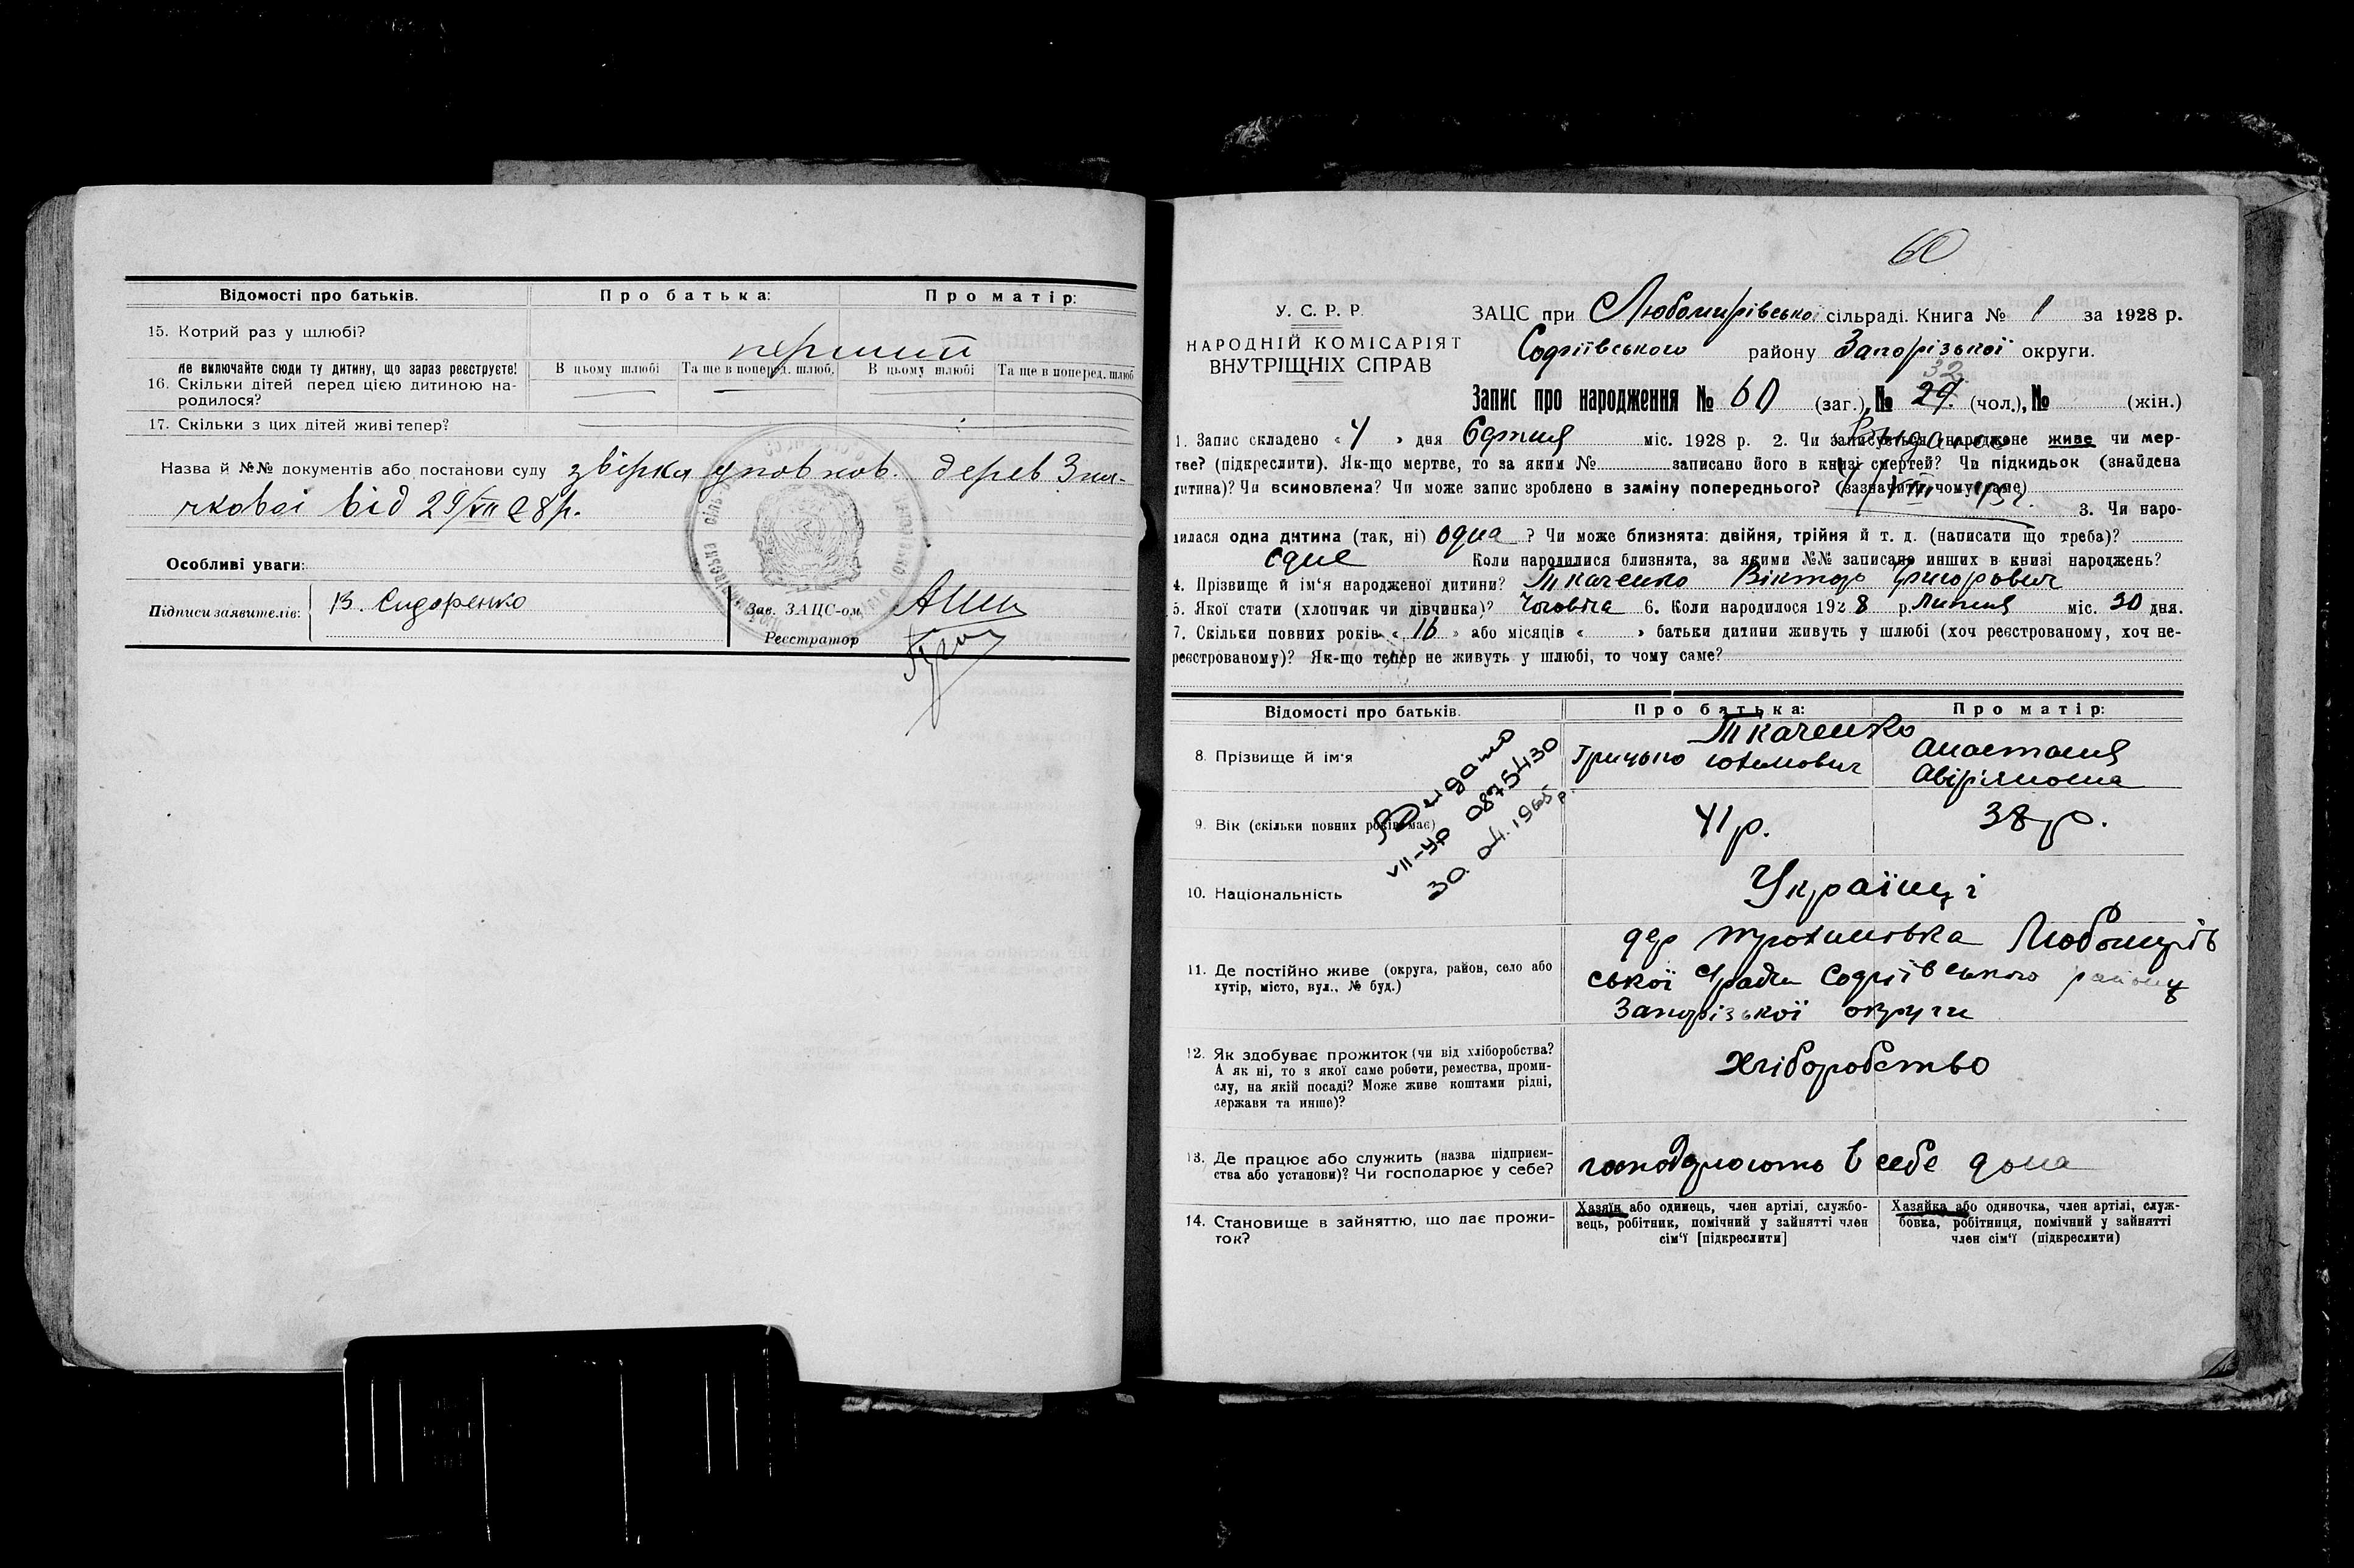 Відомості про батьків. Про батька: Про матір:
15. Котрий раз у шлюбі?
перший
Не включайте сюди ту дитину, що зараз реєструєте! В цьому шлюбі Та ще в поперед. шлюб. В цьому шлюбі Та ще в поперед. шлюб
16. Скільки дітей перед цією дитиною на-
родилося?
17. Скільки з цих дітей живі тепер?
Назва й №№ документів або постанови суду звірка уповнов. дерев Зна-
чковоі від 29/VII 28р.
Особливі уваги:
Підписи заявителів: В. Сидоренко
Зав. ЗАЦС-ом
Реєстратор
60
У. С. Р. Р.
НАРОДНІЙ КОМІСАРІЯТ
ВНУТРІШНІХ СПРАВ
ЗАЦС при Любомирівської сільраді. Книга № 1 за 1928 р.
Софіївського району Запорізької округи.
32
Запис про народження № 60 (заг.), № 29. (чол.), № (жін.)
1. Запис складено « 4 » дня Серпня міс. 1928 р. 2. Чи записується народжене живе чи мер-
тве? (підкреслити). Як-що мертве, то за яким № записано його в книзі смертей? Чи підкидьок (знайдена
дитина)? Чи всиновлена? Чи може запис зроблено в заміну попереднього? (зазначити, чому саме)
3. Чи наро-
дилася одна дитина (так, ні) одна ? Чи може близнята: двійня, трійня й т. д. (написати що треба)?
Коли народилися близнята, за якими №№ записано инших в книзі народжень?
4. Прізвище й ім'я народженої дитини? Ткаченко Віктор Григорович
5. Якої стати (хлопчик чи дівчинка)? Чоловіча 6. Коли народилося 1928 р. Липня міс. 30 дня.
7. Скільки повних років « 16 » або місяців « » батьки дитини живуть у шлюбі (хоч реєстрованому, хоч не-
реєстрованому)? Як-що тепер не живуть у шлюбі, то чому саме?
Відомості про батьків. Про батька: Про матір:
Ткаченко
8. Прізвище й ім'я Грицько Юхимович Анастасия
Авірямовна
Видано
VII-УР 0875430
30. 04. 1965 р.
9. Вік (скільки повних років має) 41 р. 38 р.
10. Національність Українці
11. Де постійно живе (округа, район, село або
хутір, місто, вул., № буд.)
дер Трохимовка Любомирів
ської С/ради Софіївського району
Запорізької округи
12. Як здобуває прожиток (чи від хліборобства?
А як ні, то з якої саме роботи, ремества, проми-
слу, на якій посаді? Може живе коштами рідні,
держави та инше)?
Хліборобство
13. Де працює або служить (назва підприєм-
ства або установи)? Чи господарює у себе?
господарюють в себе дома
14. Становище в зайняттю, що дає прожи-
ток?
Хазяїн або одинець, член артілі, службо-
вець, робітник, помічний у зайнятті член
сім'ї [підкреслити]
Хазяйка або одиночка, член артілі, служ-
бовка, робітниця, помічний у зайнятті
член сім'ї (підкреслити)